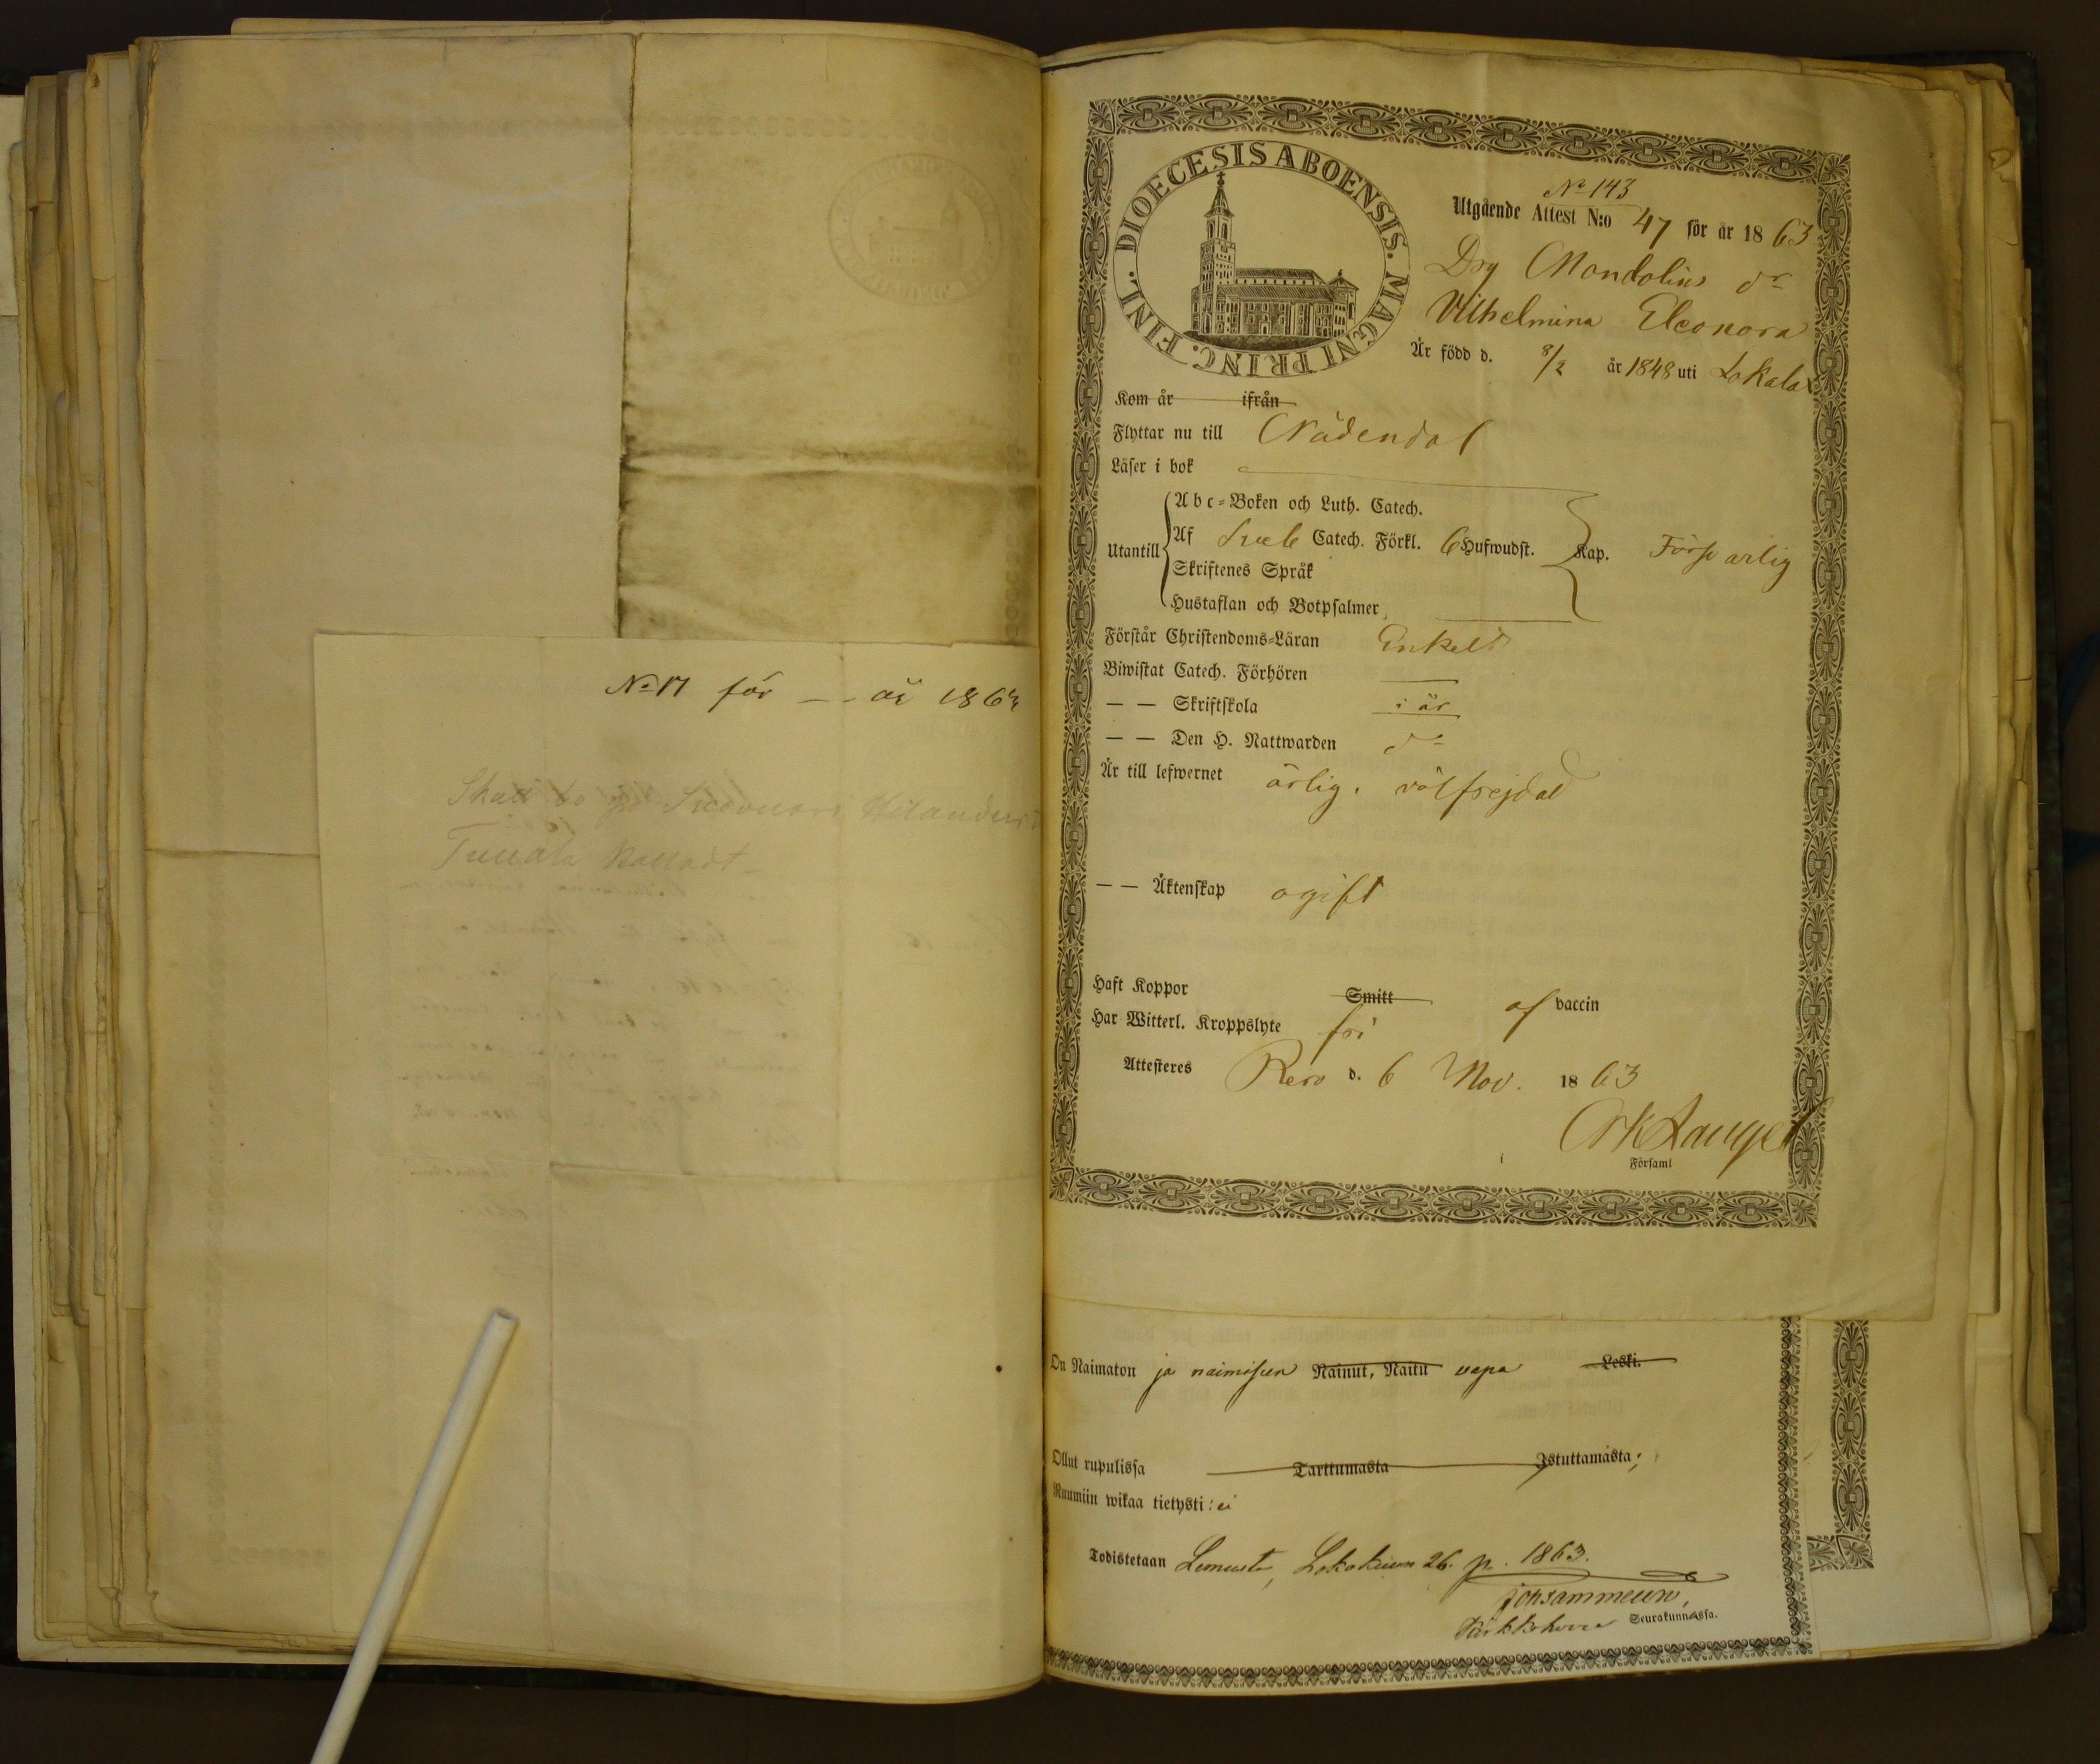 No 17 för — år 1863
Skall bo på
DIOECESIS ABOENSIS. MAGNI PRINC. FINL.
No 143
Utgående Attest N:o 47 för år 1863
Vilhelmina Eleonora
Är född d. 8/2 år 1848 uti Lokalax
Kom år ifrån
Flyttar nu till Nådendal
Läser i bok
Utantill
Abc-Boken och Luth. Catech.
Af Sveb Catech. Förkl. 6 Hufwudst. Kap. Försvarlig
Skriftenes Språk
Hustaflan och Botpsalmer
Förstår Christendoms-Läran Enkelt
Biwistat Catech. Förhören
— — Skriftskola i år
— — Den H. Nattwarden do
Är till lefwernet ärlig, välfrejdad
— — Äktenskap ogift
Haft Koppor Smitt af vaccin
Har Witterl. Kroppslyte fri
Attesteres Rewo d. 6 Nov. 1863
i Församl
On Naimaton ja naimiseen Nainut, Naitu vapa Leski.
Ollut rupulissa Tarttumasta Istuttamasta;
Ruumiin wikaa tietysti: ei
Todistetaan Lemusta, Lokakuun 26. p. 1863.
Kirkkoherra Seurakunnassa.